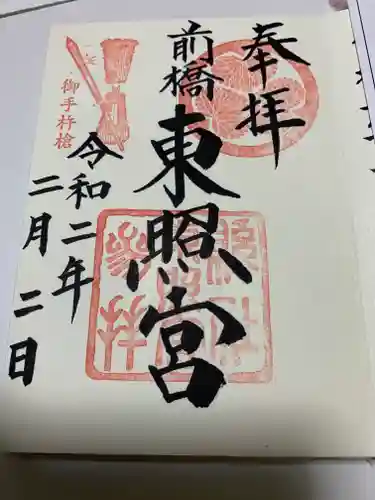 奉拝
前橋
東照宮
令和二年
二月二日
御手杵槍